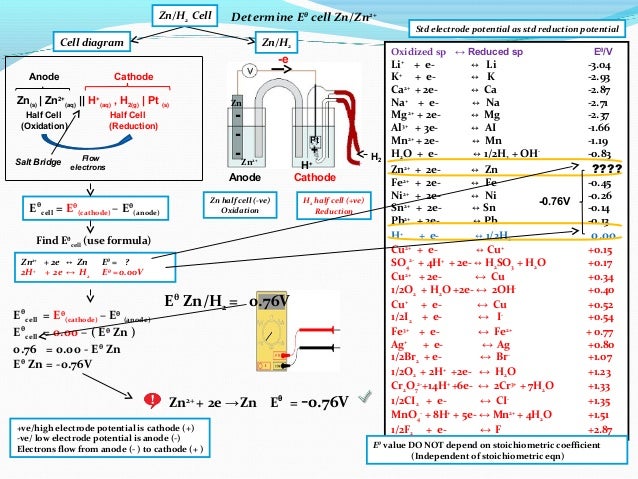 Zn/H₂ Cell
Determine Eᶿ cell Zn/Zn²⁺
Std electrode potential as std reduction potential
Cell diagram
Zn/H₂
Anode Cathode
Zn(s) | Zn²⁺(aq) || H⁺(aq) , H₂(g) | Pt (s)
Half Cell Half Cell
(Oxidation) (Reduction)
Salt Bridge
Flow
electrons
-e
V
Zn
-
-
-
Pt
+
Zn²⁺
H⁺
H₂
Anode Cathode
Zn half cell (-ve)
Oxidation
H₂ half cell (+ve)
Reduction
Eᶿcell = Eᶿ(cathode) – Eᶿ(anode)
Find Eᶿcell (use formula)
Zn²⁺ + 2e ↔ Zn Eᶿ = ?
2H⁺ + 2e ↔ H₂ Eᶿ = 0.00V
Eᶿcell = Eᶿ(cathode) – Eᶿ(anode)
Eᶿcell = 0.00 – ( Eᶿ Zn )
0.76 = 0.00 - Eᶿ Zn
Eᶿ Zn = -0.76V
Eᶿ Zn/H₂ = 0.76V
!
Zn²⁺ + 2e → Zn Eᶿ = -0.76V
+ve/high electrode potential is cathode (+)
-ve/ low electrode potential is anode (-)
Electrons flow from anode (- ) to cathode (+ )
Oxidized sp ↔ Reduced sp Eᶿ/V
Li⁺ + e- ↔ Li -3.04
K⁺ + e- ↔ K -2.93
Ca²⁺ + 2e- ↔ Ca -2.87
Na⁺ + e- ↔ Na -2.71
Mg²⁺ + 2e- ↔ Mg -2.37
Al³⁺ + 3e- ↔ Al -1.66
Mn²⁺ + 2e- ↔ Mn -1.19
H₂O + e- ↔ 1/2H₂ + OH⁻ -0.83
Zn²⁺ + 2e- ↔ Zn ????
Fe²⁺ + 2e- ↔ Fe -0.45
Ni²⁺ + 2e- ↔ Ni -0.26
Sn²⁺ + 2e- ↔ Sn -0.14
Pb²⁺ + 2e- ↔ Pb -0.13
-0.76V
H⁺ + e- ↔ 1/2H₂ 0.00
Cu²⁺ + e- ↔ Cu⁺ +0.15
SO₄²⁻ + 4H⁺ + 2e- ↔ H₂SO₃ + H₂O +0.17
Cu²⁺ + 2e- ↔ Cu +0.34
1/2O₂ + H₂O +2e- ↔ 2OH⁻ +0.40
Cu⁺ + e- ↔ Cu +0.52
1/2I₂ + e- ↔ I⁻ +0.54
Fe³⁺ + e- ↔ Fe²⁺ + 0.77
Ag⁺ + e- ↔ Ag +0.80
1/2Br₂ + e- ↔ Br⁻ +1.07
1/2O₂ + 2H⁺ +2e- ↔ H₂O +1.23
Cr₂O₇²⁻+14H⁺ +6e- ↔ 2Cr³⁺ + 7H₂O +1.33
1/2Cl₂ + e- ↔ Cl⁻ +1.35
MnO₄⁻ + 8H⁺ + 5e- ↔ Mn²⁺ + 4H₂O +1.51
1/2F₂ + e- ↔ F +2.87
Eᶿ value DO NOT depend on stoichiometric coefficient
(Independent of stoichiometric eqn)